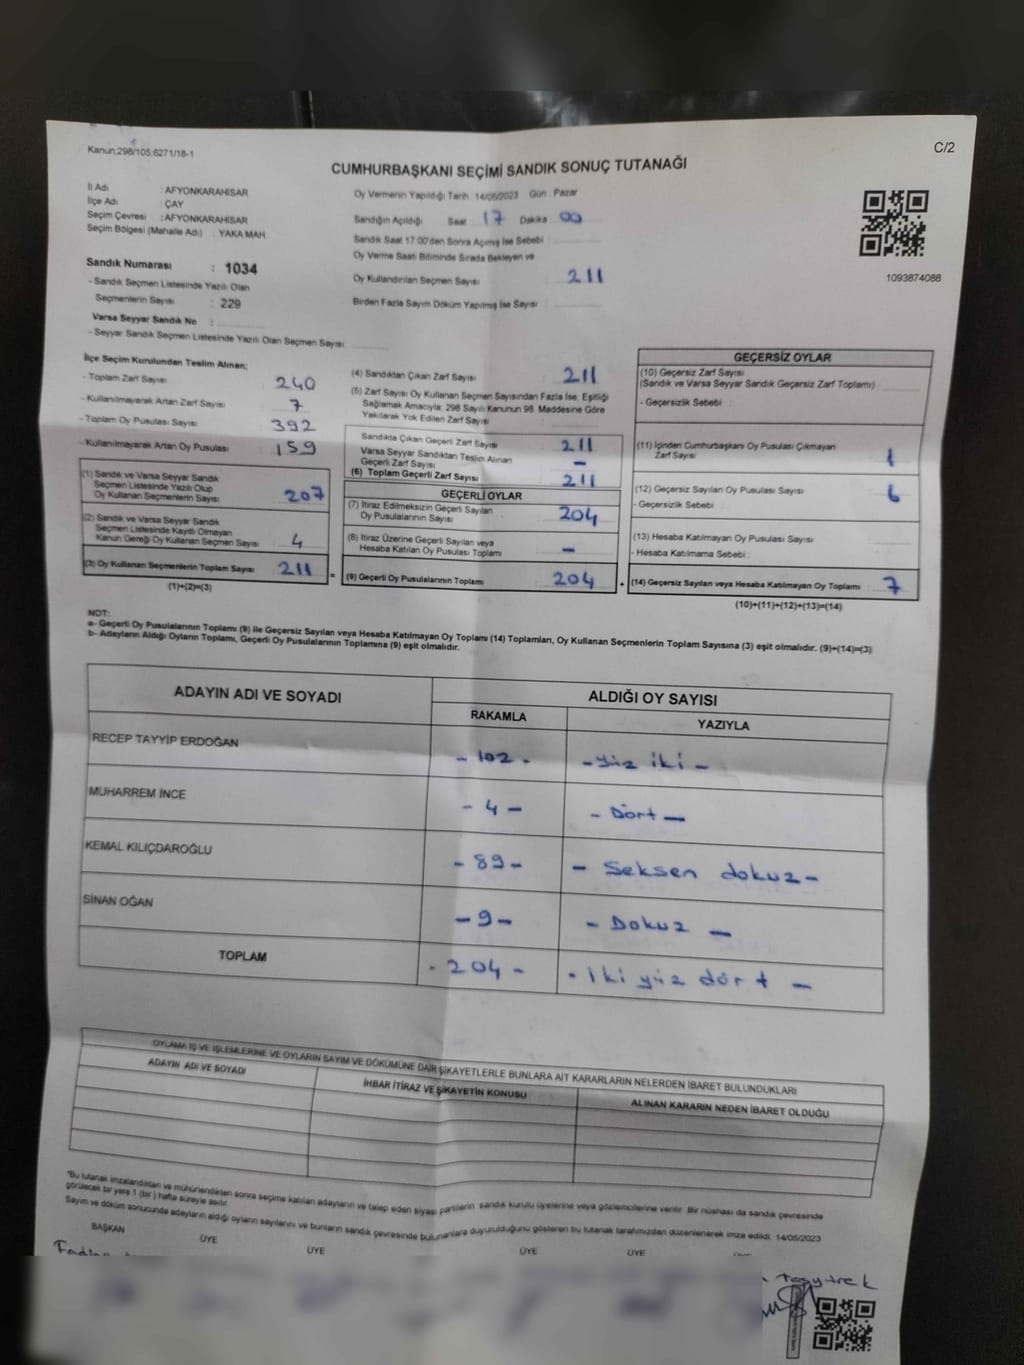 Kanun;298/105;6271/18-1
C/2
CUMHURBAŞKANI SEÇİMİ SANDIK SONUÇ TUTANAĞI
İl Adı : AFYONKARAHİSAR
İlçe Adı : ÇAY
Seçim Çevresi : AFYONKARAHİSAR
Seçim Bölgesi (Mahalle Adı) : YAKA MAH
Sandık Numarası : 1034
- Sandık Seçmen Listesinde Yazılı Olan
Seçmenlerin Sayısı : 229
Varsa Seyyar Sandık No :
- Seyyar Sandık Seçmen Listesinde Yazılı Olan Seçmen Sayısı
Oy Vermenin Yapıldığı Tarih 14/05/2023 Gün : Pazar
Sandığın Açıldığı Saat : 17 Dakika : 00
Sandık Saat 17:00'den Sonra Açmış İse Sebebi :
Oy Verme Saati Bitiminde Sırada Bekleyen ve
Oy Kullandırılan Seçmen Sayısı : 211
Birden Fazla Sayım Döküm Yapılmış İse Sayısı :
1093874088
İlçe Seçim Kurulundan Teslim Alınan;
- Toplam Zarf Sayısı : 240
- Kullanılmayarak Artan Zarf Sayısı : 7
- Toplam Oy Pusulası Sayısı : 392
- Kullanılmayarak Artan Oy Pusulası : 159
(1) Sandık ve Varsa Seyyar Sandık
Seçmen Listesinde Yazılı Olup
Oy Kullanan Seçmenlerin Sayısı : 207
(2) Sandık ve Varsa Seyyar Sandık
Seçmen Listesinde Kayıtlı Olmayan
Kanun Gereği Oy Kullanan Seçmen Sayısı : 4
(3) Oy Kullanan Seçmenlerin Toplam Sayısı : 211
(1)+(2)=(3)
(4) Sandıktan Çıkan Zarf Sayısı : 211
(5) Zarf Sayısı Oy Kullanan Seçmen Sayısından Fazla İse, Eşitliği
Sağlamak Amacıyla; 298 Sayılı Kanunun 98. Maddesine Göre
Yakılarak Yok Edilen Zarf Sayısı :
Sandıkta Çıkan Geçerli Zarf Sayısı : 211
Varsa Seyyar Sandıktan Teslim Alınan
Geçerli Zarf Sayısı : -
(6) Toplam Geçerli Zarf Sayısı : 211
GEÇERLİ OYLAR
(7) İtiraz Edilmeksizin Geçerli Sayılan
Oy Pusulalarının Sayısı : 204
(8) İtiraz Üzerine Geçerli Sayılan veya
Hesaba Katılan Oy Pusulası Toplamı : -
= (9) Geçerli Oy Pusulalarının Toplamı : 204
GEÇERSİZ OYLAR
(10) Geçersiz Zarf Sayısı
(Sandık ve Varsa Seyyar Sandık Geçersiz Zarf Toplamı) :
- Geçersizlik Sebebi :
(11) İçinden Cumhurbaşkanı Oy Pusulası Çıkmayan
Zarf Sayısı : 1
(12) Geçersiz Sayılan Oy Pusulası Sayısı : 6
- Geçersizlik Sebebi :
(13) Hesaba Katılmayan Oy Pusulası Sayısı :
- Hesaba Katılmama Sebebi :
+ (14) Geçersiz Sayılan veya Hesaba Katılmayan Oy Toplamı : 7
(10)+(11)+(12)+(13)=(14)
NOT:
a- Geçerli Oy Pusulalarının Toplamı (9) ile Geçersiz Sayılan veya Hesaba Katılmayan Oy Toplamı (14) Toplamları, Oy Kullanan Seçmenlerin Toplam Sayısına (3) eşit olmalıdır. (9)+(14)=(3)
b- Adayların Aldığı Oyların Toplamı, Geçerli Oy Pusulalarının Toplamına (9) eşit olmalıdır.
ADAYIN ADI VE SOYADI ALDIĞI OY SAYISI
RAKAMLA YAZIYLA
RECEP TAYYİP ERDOĞAN - 102 - - Yüz iki -
MUHARREM İNCE - 4 - - Dört -
KEMAL KILIÇDAROĞLU - 89 - - Seksen dokuz -
SİNAN OĞAN - 9 - - Dokuz -
TOPLAM - 204 - - iki yüz dört -
OYLAMA İŞ VE İŞLEMLERİNE VE OYLARIN SAYIM VE DÖKÜMÜNE DAİR ŞİKAYETLERLE BUNLARA AİT KARARLARIN NELERDEN İBARET BULUNDUKLARI
ADAYIN ADI VE SOYADI İHBAR İTİRAZ VE ŞİKAYETİN KONUSU ALINAN KARARIN NEDEN İBARET OLDUĞU
*Bu tutanak imzalandıktan ve mühürlendikten sonra seçime katılan adayların ve talep eden siyasi partilerin sandık kurulu üyelerine veya gözlemcilerine verilir. Bir nüshası da sandık çevresinde
görülecek bir yere 1 (bir) hafta süreyle asılır.
Sayım ve döküm sonucunda adayların aldığı oyların sayılarını ve bunların sandık çevresinde bulunanlara duyurulduğunu gösteren bu tutanak tarafımızdan düzenlenerek imza edildi. 14/05/2023
BAŞKAN ÜYE ÜYE ÜYE ÜYE